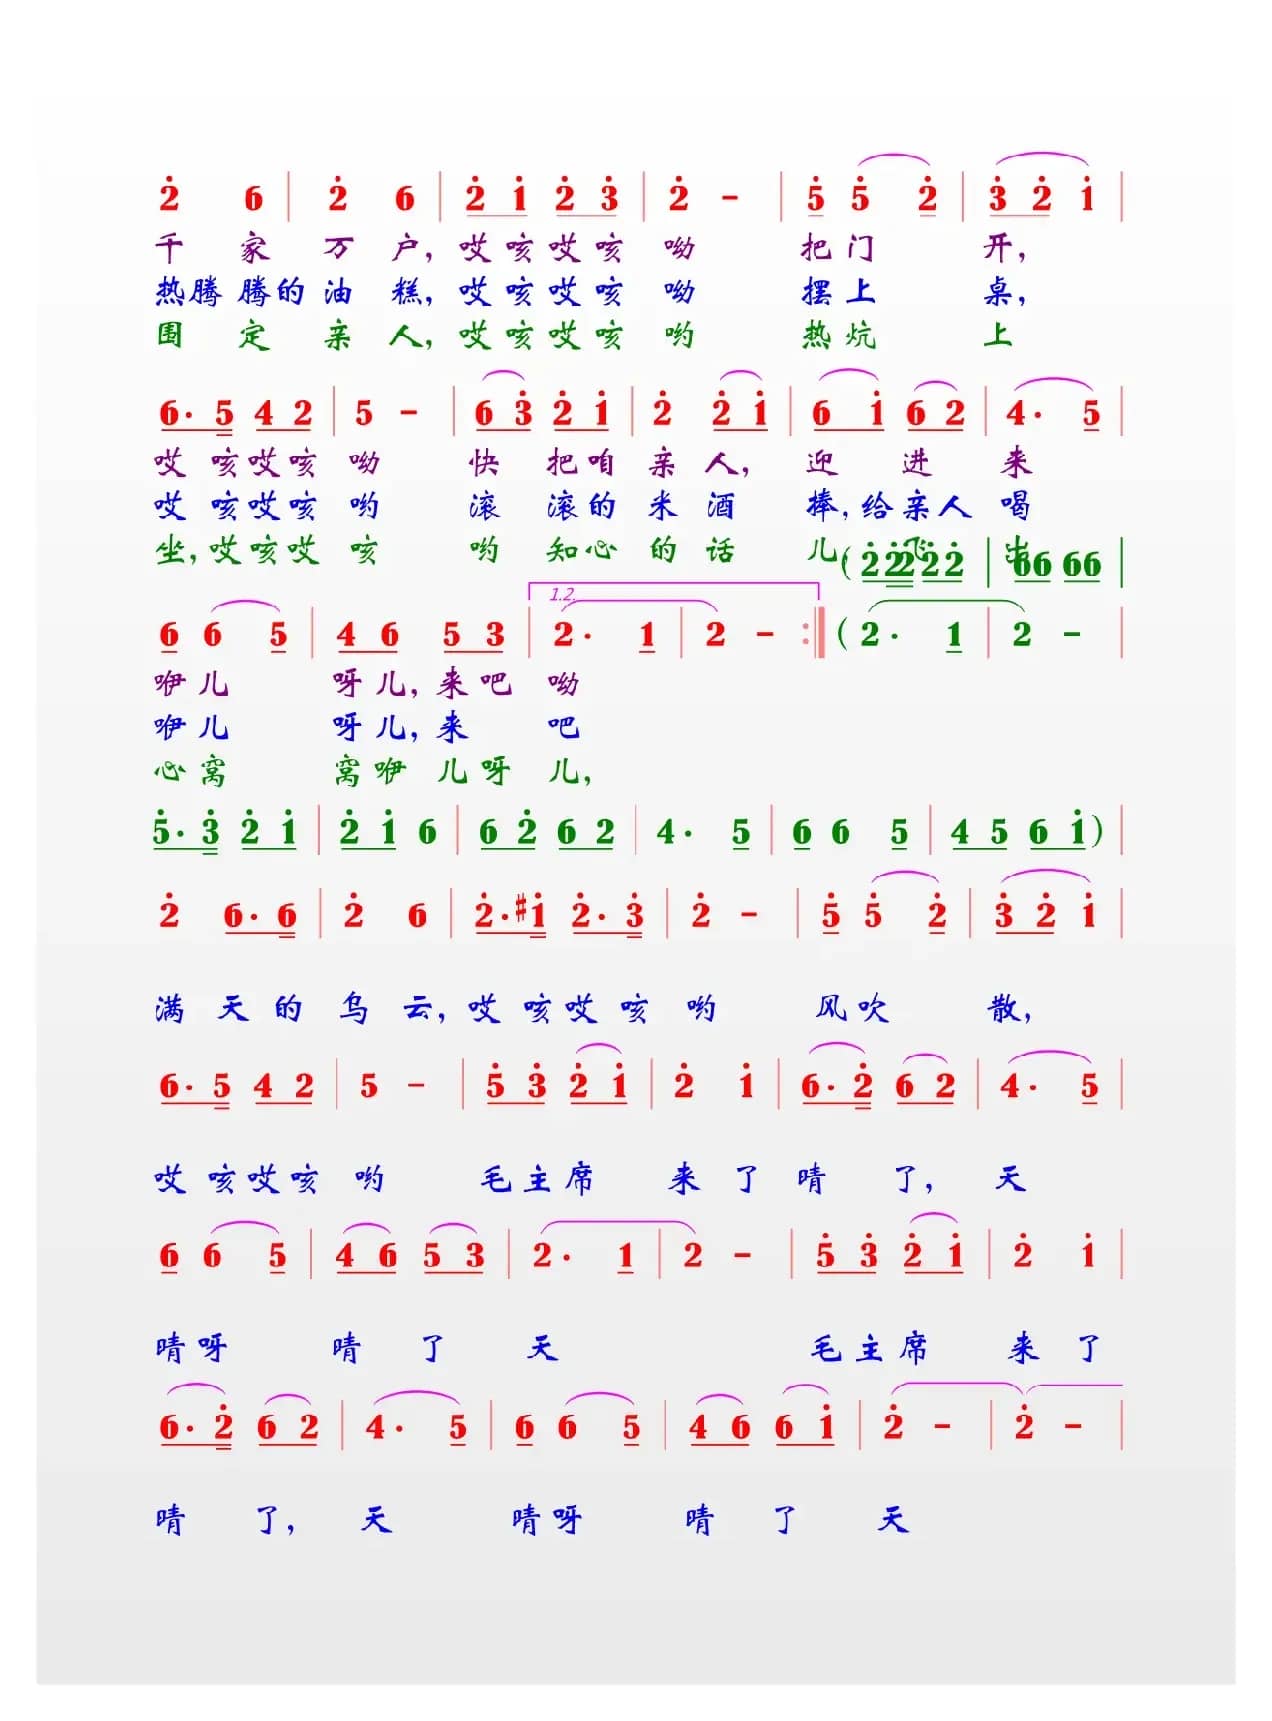 2 6 | 2 6 | 2 1 2 3 | 2 - | 5 5 2 | 3 2 1 |
千 家 万 户, 哎 咳 哎 咳 呦 把 门 开,
热腾 腾的 油 糕, 哎 咳 哎 咳 呦 摆 上 桌,
围 定 亲 人, 哎 咳 哎 咳 哟 热 炕 上
6· 5 4 2 | 5 - | 6 3 2 1 | 2 2 1 | 6 1 6 2 | 4· 5 |
哎 咳 哎 咳 呦 快 把 咱 亲 人, 迎 进 来
哎 咳 哎 咳 哟 滚 滚 的 米 酒 捧, 给 亲 人 喝
坐, 哎 咳 哎 咳 哟 知 心 的 话 儿, 飞 出
(2 2 2 2 2 | 66 66 |
1.2.
6 6 5 | 4 6 5 3 | 2· 1 | 2 - :| (2· 1 | 2 - |
咿 儿 呀 儿, 来 吧 呦
咿 儿 呀 儿, 来 吧
心 窝 窝 咿 儿 呀 儿,
5· 3 2 1 | 2 1 6 | 6 2 6 2 | 4· 5 | 6 6 5 | 4 5 6 1) |
2 6· 6 | 2 6 | 2· #1 2· 3 | 2 - | 5 5 2 | 3 2 1 |
满 天 的 乌 云, 哎 咳 哎 咳 哟 风 吹 散,
6· 5 4 2 | 5 - | 5 3 2 1 | 2 1 | 6· 2 6 2 | 4· 5 |
哎 咳 哎 咳 哟 毛 主 席 来 了 晴 了, 天
6 6 5 | 4 6 5 3 | 2· 1 | 2 - | 5 3 2 1 | 2 1 |
晴 呀 晴 了 天 毛 主 席 来 了
6· 2 6 2 | 4· 5 | 6 6 5 | 4 6 6 1 | 2 - | 2 - |
晴 了, 天 晴 呀 晴 了 天